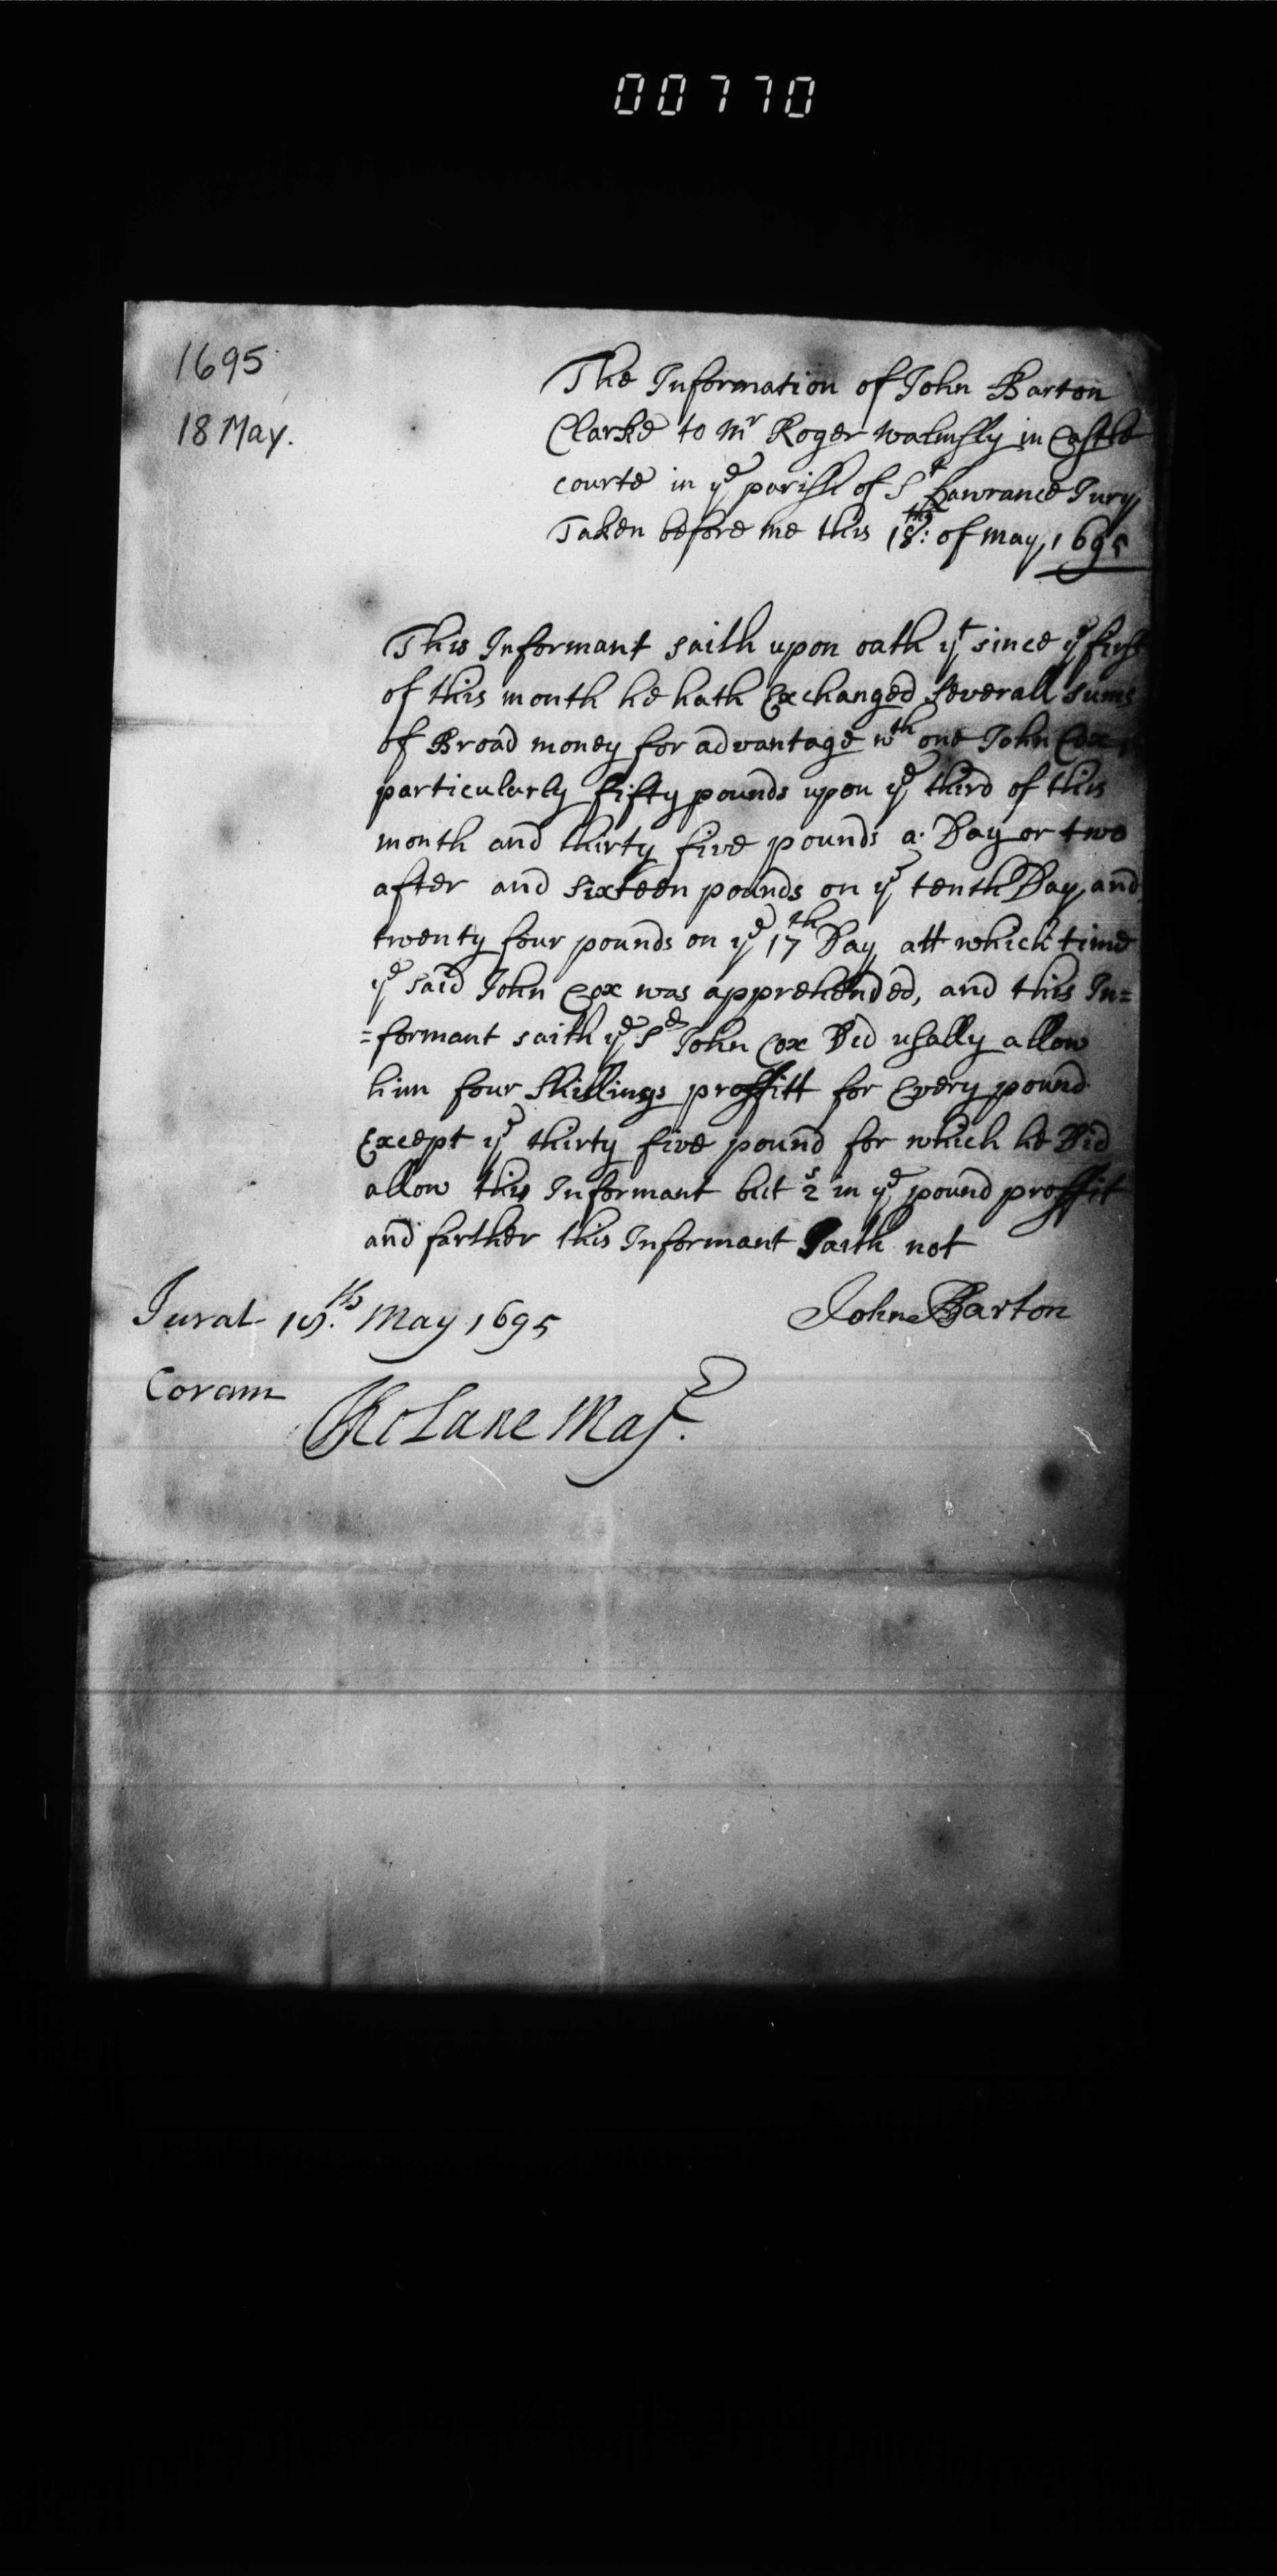 00770
1695
18 May.
The Information of John Barton
Clarke to Mr Roger Walmsly in Castle
courte in ye parish of St Lawrance Jury
Taken before me this 18th: of may, 1695
This Informant saith upon oath yt since ye first
of this month he hath Exchanged severall sums
of Broad money for advantage wth one John Cox,
particularly fifty pounds upon ye third of this
month and thirty five pounds a Day or two
after and sixteen pounds on ye tenth Day and
twenty four pounds on ye 17th Day att which time
ye said John Cox was apprehended, and this In=
=formant saith ye Sd John Cox Did usally allow
him four Shillings proffitt for Every pound
Except ye thirty five pound for which he Did
allow this Informant but 2s in ye pound proffit
and farther this Informant Saith not
John Barton
Jurat 18th: May 1695
Coram
Tho Lane Mayr.